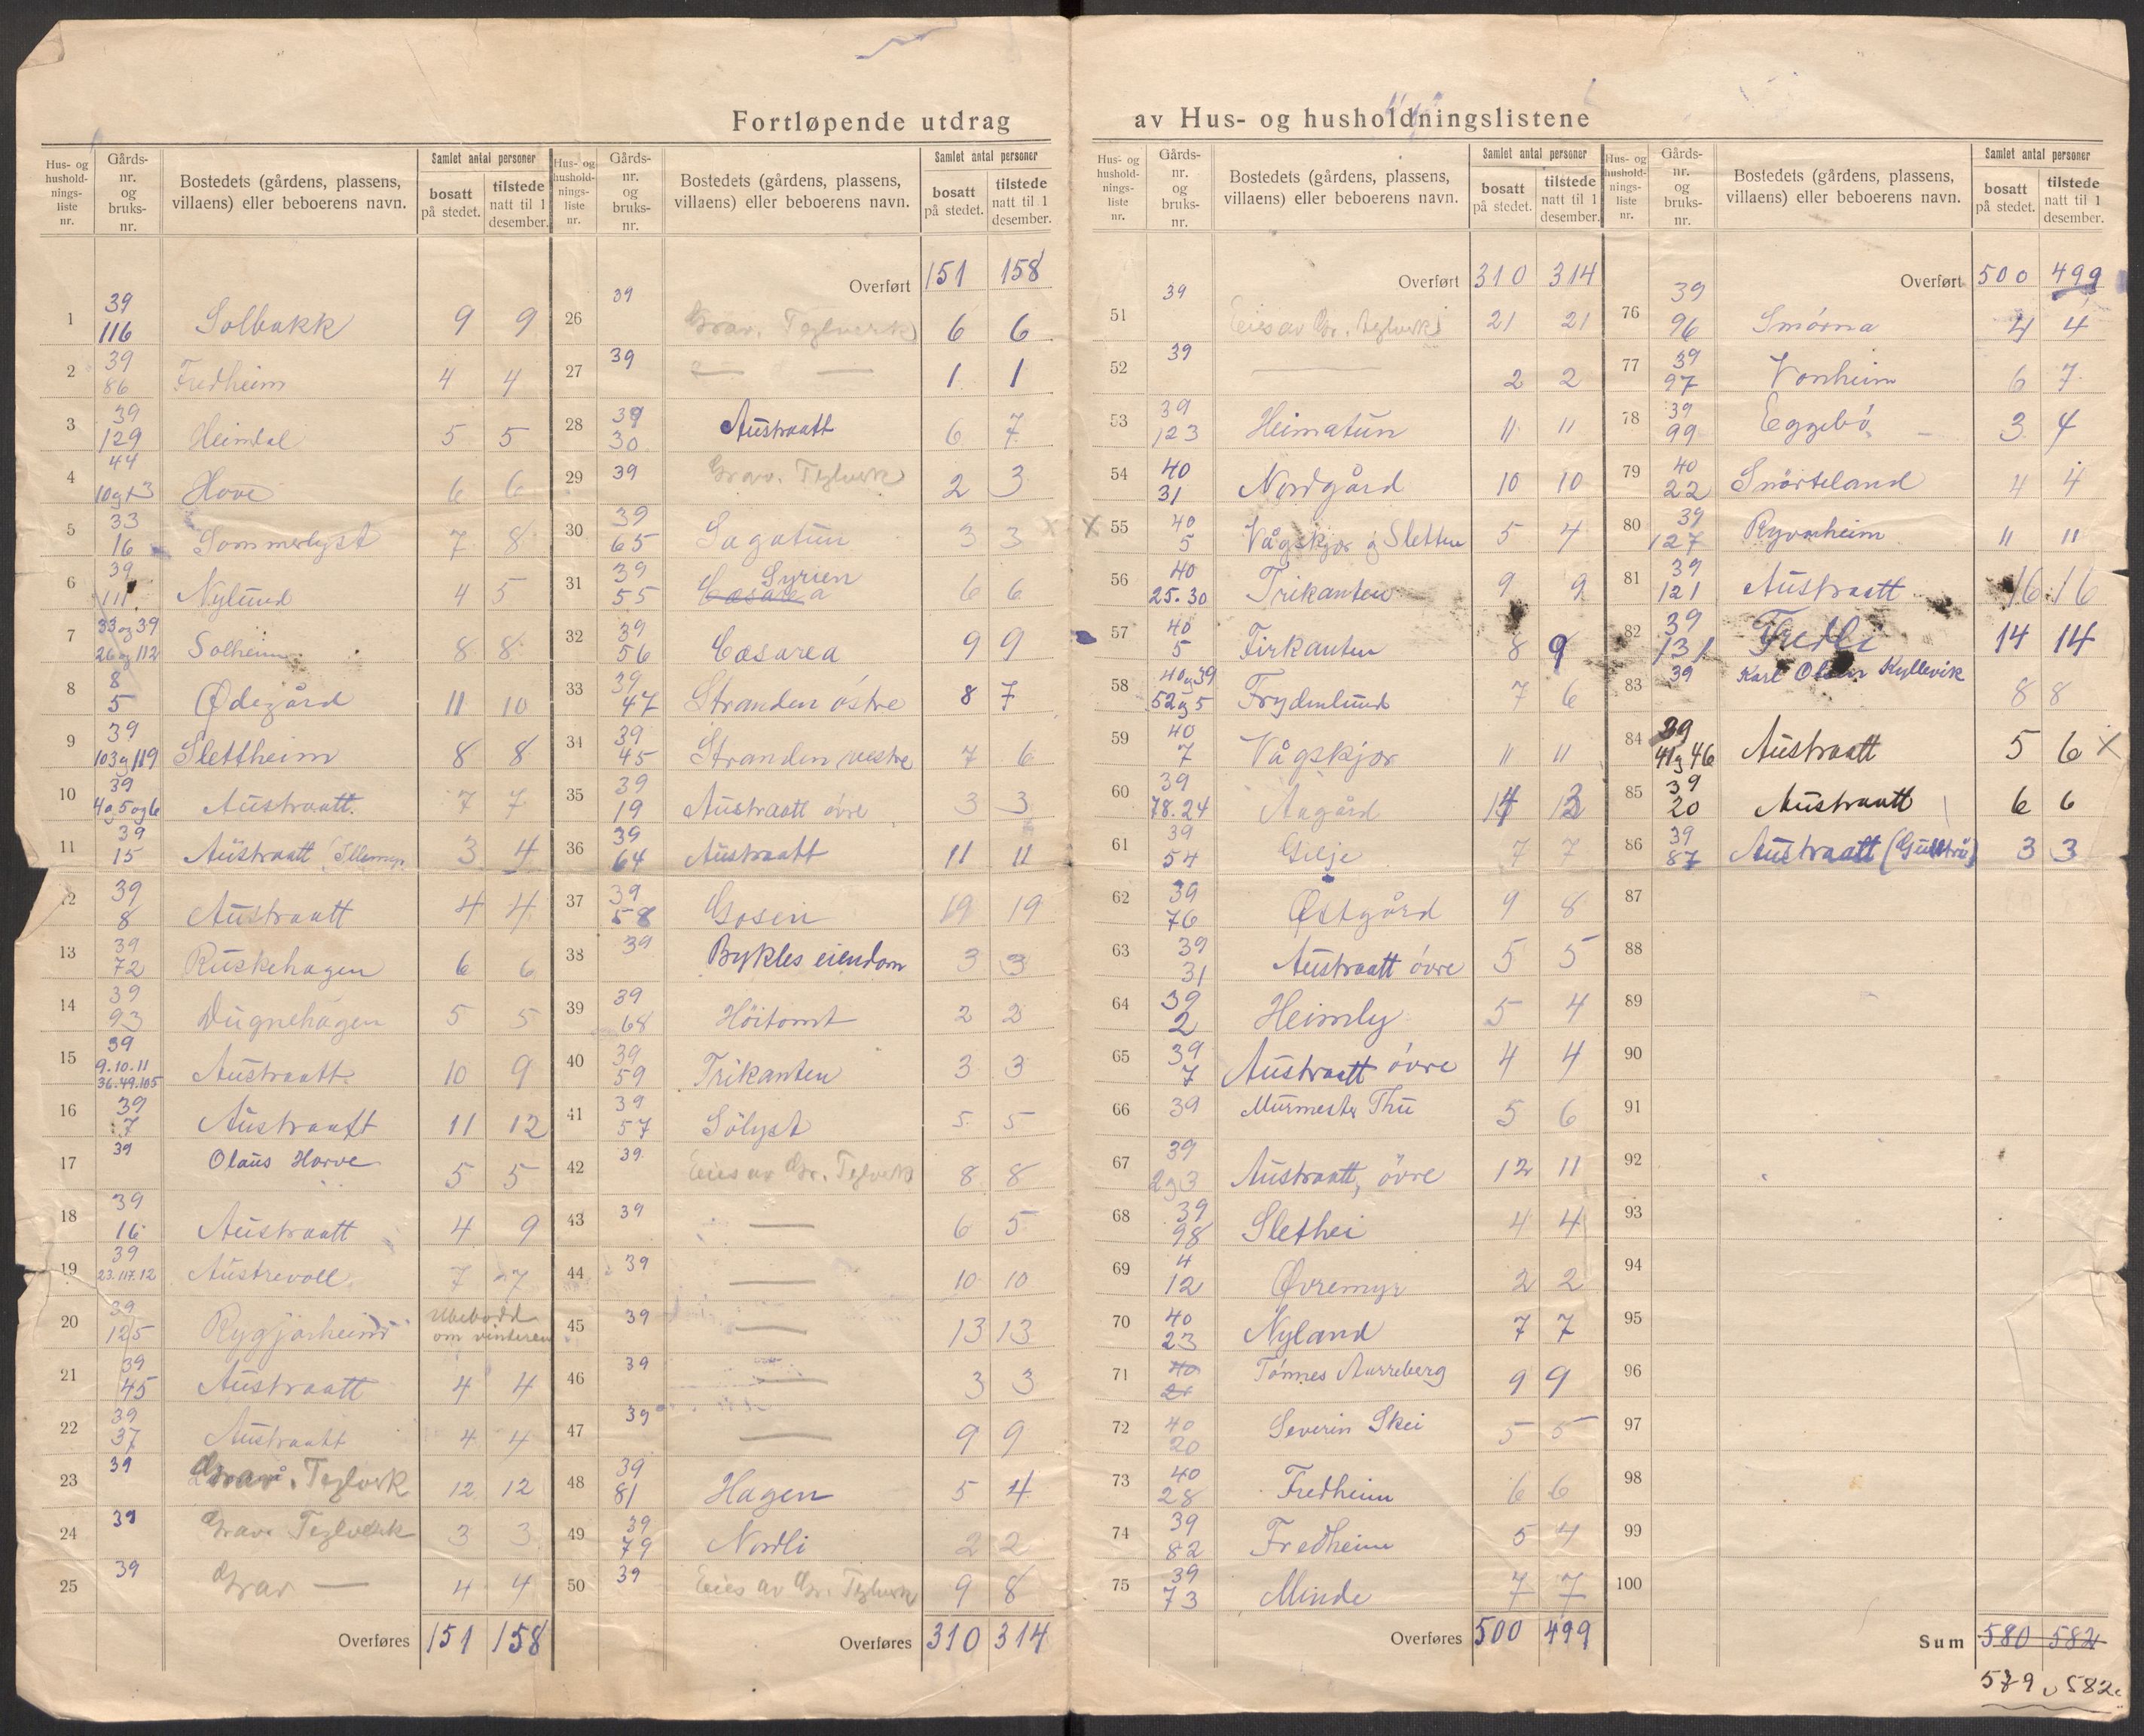 Fortløpende utdrag av Hus- og husholdningslistene
Hus- og husholdnings-liste nr. | Gårds-nr. og bruks-nr. | Bostedets (gårdens, plassens, villaens) eller beboerens navn. | Samlet antal personer: bosatt på stedet. | tilstede natt til 1 desember.
1 | 39 116 | Solbakk | 9 | 9
2 | 39 86 | Fredheim | 4 | 4
3 | 39 129 | Heimdal | 5 | 5
4 | 44 10 og 13 | Hove | 6 | 6
5 | 33 16 | Sommerlyst | 7 | 8
6 | 39 111 | Nylund | 4 | 5
7 | 33 og 39 26 og 112 | Solheim | 8 | 8
8 | 8 5 | Ødegård | 11 | 10
9 | 39 103 og 119 | Slettheim | 8 | 8
10 | 39 4 og 5 og 6 | Austraatt. | 7 | 7
11 | 39 15 | Austraatt | 3 | 4
12 | 39 8 | Austraatt | 4 | 4
13 | 39 72 | Ruskehagen | 6 | 6
14 | 39 93 | Dugnehagen | 5 | 5
15 | 39 9.10.11 36.49.105 | Austraatt | 10 | 9
16 | 39 7 | Austraatt | 11 | 12
17 | 39 | Olaus Horve | 5 | 5
18 | 39 16 | Austraatt | 4 | 9
19 | 39 23.117.12 | Austrevoll | 7 | 7
20 | 39 125 | Rygjarheim | Ubebodd om vinteren
21 | 39 45 | Austraatt | 4 | 4
22 | 39 37 | Austraatt | 4 | 4
23 | 39 | Grav. Teglverk | 12 | 12
24 | 39 | Grav. Teglverk | 3 | 3
25 | 39 | Grav — | 4 | 4
Overføres | 151 | 158
Hus- og husholdnings-liste nr. | Gårds-nr. og bruks-nr. | Bostedets (gårdens, plassens, villaens) eller beboerens navn. | Samlet antal personer: bosatt på stedet. | tilstede natt til 1 desember.
Overført | 151 | 158
26 | 39 | Grav. Teglverk | 6 | 6
27 | 39 | — — | 1 | 1
28 | 39 30 | Austraatt | 6 | 7
29 | 39 | Grav. Teglverk | 2 | 3
30 | 39 65 | Sagatun | 3 | 3 x
31 | 39 55 | Syrien Cæsarea | 6 | 6
32 | 39 56 | Cæsarea | 9 | 9
33 | 39 47 | Stranden østre | 8 | 7
34 | 39 45 | Stranden vestre | 7 | 6
35 | 39 19 | Austraatt øvre | 3 | 3
36 | 39 64 | Austraatt | 11 | 11
37 | 39 58 | Gosen | 19 | 19
38 | 39 | Bykles eiendom | 3 | 3
39 | 39 68 | Höitomt | 2 | 2
40 | 39 59 | Trikanten | 3 | 3
41 | 39 57 | Sölyst | 5 | 5
42 | 39 | Eies av Gr. Teglverk | 8 | 8
43 | 39 | — | 6 | 5
44 | 39 | — | 10 | 10
45 | 39 | — | 13 | 13
46 | 39 | — | 3 | 3
47 | 39 | — | 9 | 9
48 | 39 81 | Hagen | 5 | 4
49 | 39 79 | Nordli | 2 | 2
50 | 39 | Eies av Gr. Teglverk | 9 | 8
Overføres | 310 | 314
Hus- og husholdnings-liste nr. | Gårds-nr. og bruks-nr. | Bostedets (gårdens, plassens, villaens) eller beboerens navn. | Samlet antal personer: bosatt på stedet. | tilstede natt til 1 desember.
Overført | 310 | 314
51 | 39 | Eies av Gr. Teglverk | 21 | 21
52 | 39 | — | 2 | 2
53 | 39 123 | Heimatun | 11 | 11
54 | 40 31 | Nordgård | 10 | 10
x 55 | 40 5 | Vågskjør og Sletten | 5 | 4
56 | 40 25.30 | Trikanten | 9 | 9
57 | 40 5 | Firkanten | 8 | 9
58 | 40 og 39 52 og 5 | Frydenlund | 7 | 6
59 | 40 7 | Vågskjør | 11 | 11
60 | 39 78.24 | Aagård | 14 | 13
61 | 39 54 | Gilje | 7 | 7
62 | 39 76 | Østgård | 9 | 8
63 | 39 31 | Austraatt øvre | 5 | 5
64 | 39 2 | Heimly | 5 | 4
65 | 39 7 | Austraatt øvre | 4 | 4
66 | 39 | Murmester Thu | 5 | 6
67 | 39 2 og 3 | Austraatt, övre | 12 | 11
68 | 39 98 | Slethei | 4 | 4
69 | 4 12 | Øvremyr | 2 | 2
70 | 40 23 | Nyland | 7 | 7
71 | 40 21 | Tønnes Aurreberg | 9 | 9
72 | 40 20 | Severin Skei | 5 | 5
73 | 40 28 | Fredheim | 6 | 6
74 | 39 82 | Fredheim | 5 | 4
75 | 39 73 | Minde | 7 | 7
Overføres | 500 | 499
Hus- og husholdnings-liste nr. | Gårds-nr. og bruks-nr. | Bostedets (gårdens, plassens, villaens) eller beboerens navn. | Samlet antal personer: bosatt på stedet. | tilstede natt til 1 desember.
Overført | 500 | 499
76 | 39 96 | Smörna | 4 | 4
77 | 39 97 | Vonheim | 6 | 7
78 | 39 99 | Eggebø | 3 | 4
79 | 40 22 | Snörteland | 4 | 4
80 | 39 127 | Ryvarheim | 11 | 11
81 | 39 121 | Austraatt | 16 | 16
82 | 39 131 | Fredli | 14 | 14
83 | 39 | Karl Olsen Kyllevik | 8 | 8
84 | 39 41 og 46 | Austraatt | 5 | 6 x
85 | 39 20 | Austraatt | 6 | 6
86 | 39 87 | Austraatt | 3 | 3
87
88
89
90
91
92
93
94
95
96
97
98
99
100
Sum | 580 | 582
579 582